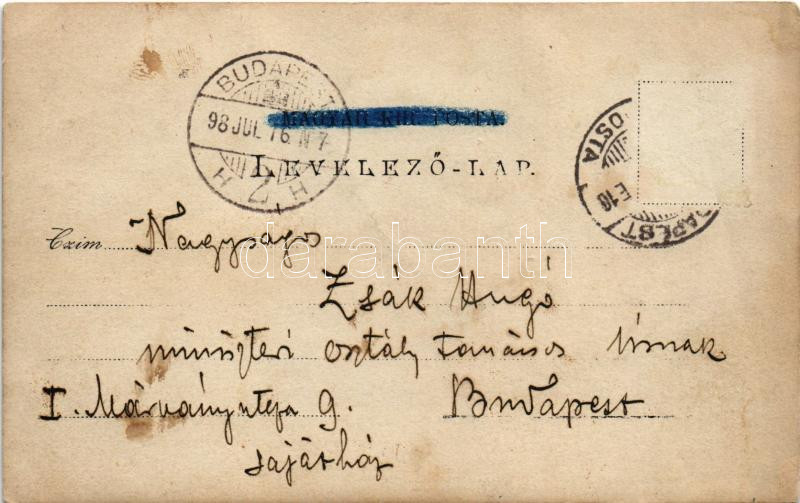 BUDAPEST
98 JUL 16 N 7
H 7 H
MAGYAR KIR. POSTA.
LEVELEZŐ-LAP.
POSTA
E 16
BUDAPEST
Czim Nagyságos
darabanth.com
Zsák Hugó
miniszteri osztály tanácsos Úrnak
I. Márvány utcza 9. Budapest
saját ház